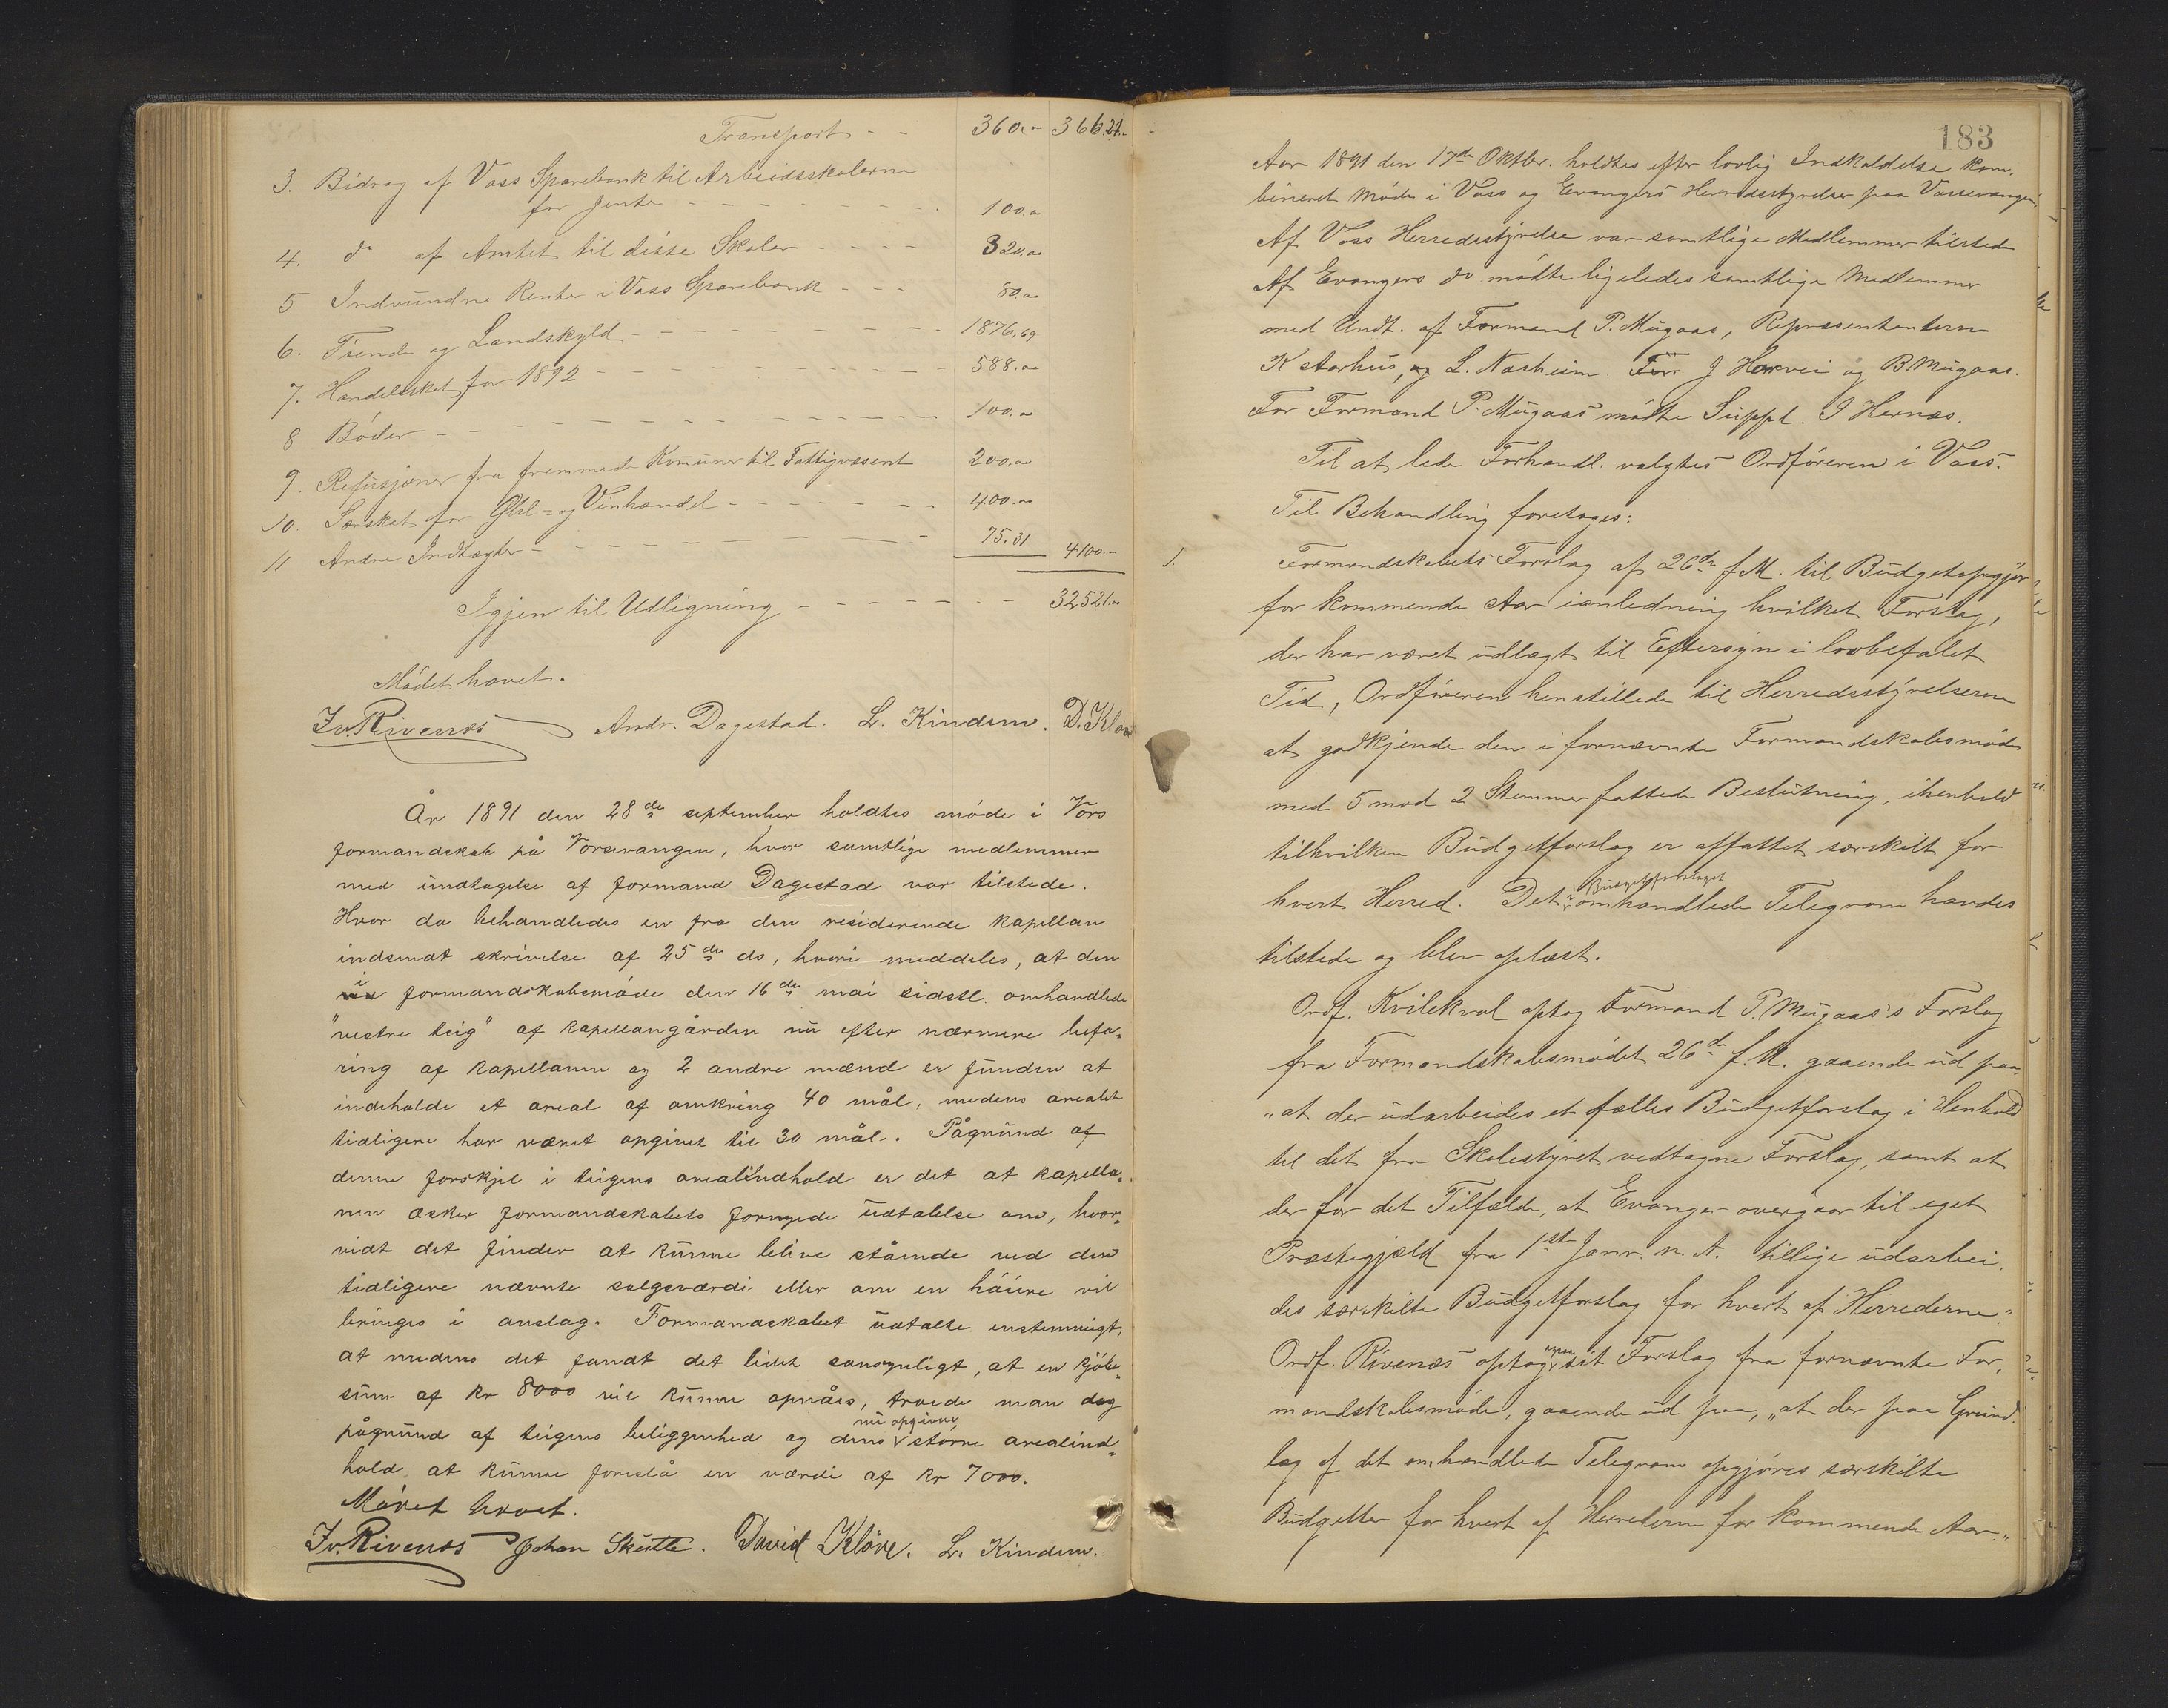 Transport - - 360.00 36621.-
3. Bidrag af Voss Sparebank til Arbeidsskolerne
for Jenter - - - - - - - - 100.00
4. do af Amtet til disse Skoler - - - - 320.00
5 Indvundne Renter i Voss Sparebank - - - 80.00
6. Tiende og Landskyld - - - - - - - - 1876.69
7. Handelsskat for 1892 - - - - - - - - 588.00
8 Bøder - - - - - - - - - - - 100.00
9. Refusjoner fra fremmede Komuner til Fattigvæsent 200.00
10. Særskat for Øhl- og Vinhandel - - - - - - 400.00
11 Andre Indtægter - - - - - - - - - 75.31 4100.-
Igjen til Udligning - - - - - - 32521.00
Mødet hævet.
Iv. Rivenæs Andr. Dagestad. L. Kindem. D. Kløve
År 1891 den 28de september holdtes møde i Vors
formandskab på Vorsevangen, hvor samtlige medlemmer
med undtagelse af formand Dagestad var tilstede.
Hvor da behandledes en fra den residerende kapellan
indsendt skrivelse af 25de ds, hvori meddeles, at den
i formandskabsmøde den 16de mai sidstl. omhandlede
"vestre teig" af kapellangården nu efter nærmere befa-
ring af kapellanen og 2 andre mænd er funden at
indeholde et areal af omkring 40 mål, medens arealet
tidligere har været opgivet til 30 mål. Pågrund af
denne forskjel i teigens arealindhold er det at kapella-
nen æsker formandskabets fornyede udtalelse om, hvor-
vidt det finder at kunne blive stående ved den
tidligere nævnte salgsværdi eller om en høiere vil
bringes i anslag. Formandskabet udtalte enstemmigt,
at medens det fandt det lidet sansynligt, at en kjøbe-
sum af kr 8000 vil kunne opnåes, troede man dog
nu opgivne
pågrund af teigens beliggenhed og dens større arealind-
hold at kunne foreslå en værdi af kr 7000.
Mødet hævet.
Iv. Rivenæs Johan Skutle. David Kløve. L. Kindem.
183
Aar 1891 den 17de Oktbr. holdtes efter lovlig Indkaldelse kom-
bineret Møde i Voss og Evangers Herredsstyrelser paa Vossevangen.
Af Voss Herredsstyrelse var samtlige Medlemmer tilsted
Af Evangers do mødte ligeledes samtlige Medlemmer
med Undt. af Formand P. Mugaas, Repræsentanterne
K Aarhus, og L. Næsheim. For J Horvei og B Mugaas.
For Formand P. Mugaas mødte Suppl. I Hernæs.
Til at lede Forhandl. valgtes Ordføreren i Voss.
Til Behandling foretoges:
1. Formandskabets Forslag af 26de f.M. til Budgetopgjør
for kommende Aar ianledning hvilket Forslag,
der har været udlagt til Eftersyn i lovbefalet
Tid, Ordføreren henstillede til Herredsstyrelserne
at godkjende den i fornævnte Formandskabsmøde
med 5 mod 2 Stemmer fattede Beslutning, ihenhold
tilhvilken Budgetforslag er affattet særskilt for
hvert Herred. Det i Budgetforslaget omhandlede Telegram havdes
tilstede og blev oplæst.
Ordf. Kvilekval optog Formand P. Mugaas's Forslag
fra Formandskabsmødet 26de f.M. gaaende ud paa
"at der udarbeides et fælles Budgetforslag i Henhold
til det fra Skolestyret vedtagne Forslag, samt at
der for det Tilfælde, at Evanger overgaar til eget
Præstegjæld fra 1ste Janr. n. A. tillige udarbei-
des særskilte Budgetforslag for hvert af Herrederne."
Ordf. Rivenæs optog sit Forslag fra fornævnte For-
mandskabsmøde, gaaende ud paa, "at der paa Grund-
lag af det omhandlede Telegram opgjøres særskilte
Budgetter for hvert af Herrederne for kommende Aar."